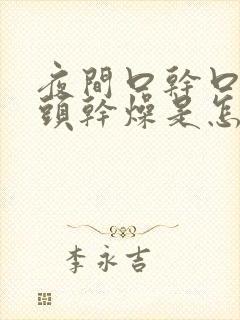 夜間口幹口
頭幹燥是怎
李永吉